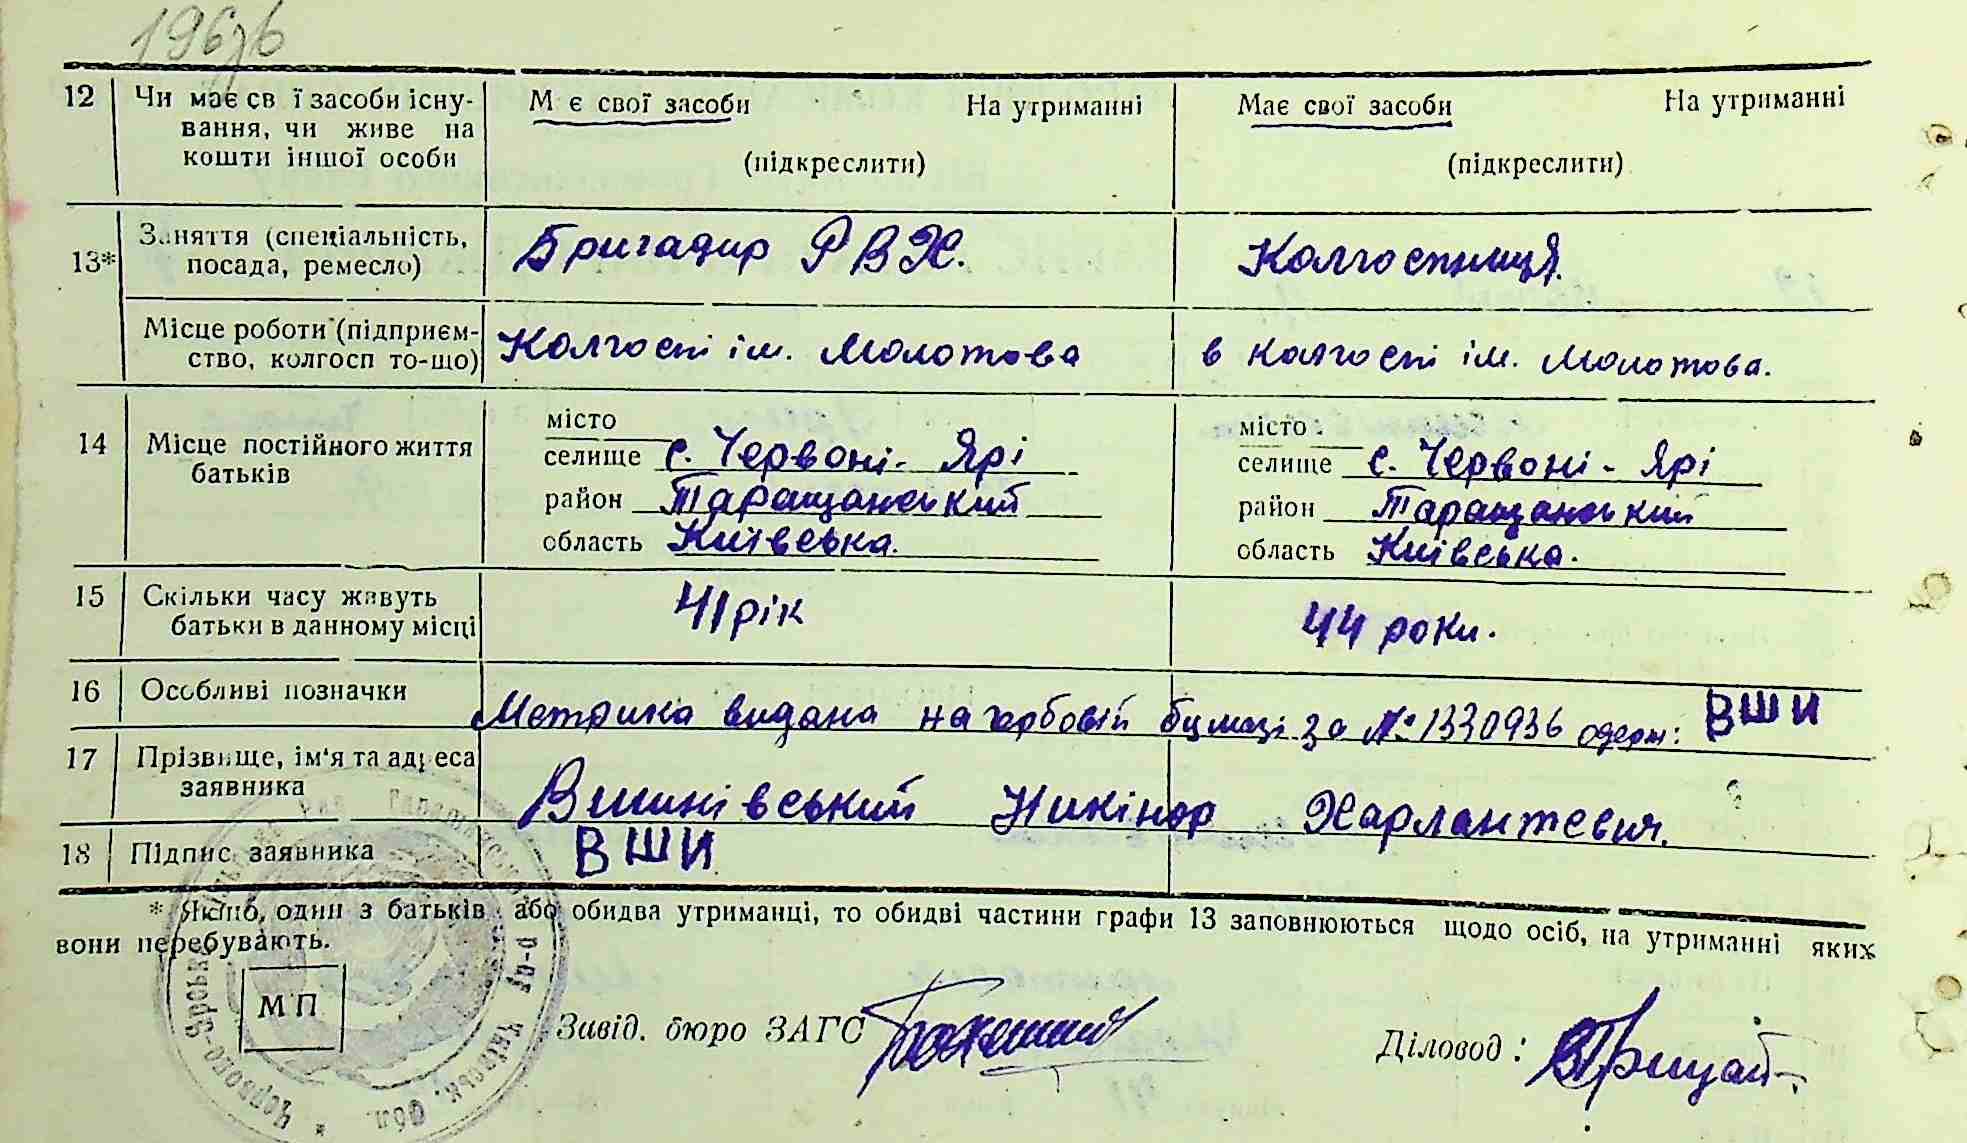 196
12 Чи має св ї засоби існу- М є свої засоби На утриманні Має свої засоби На утриманні
вання, чи живе на
кошти іншої особи (підкреслити) (підкреслити)
13* Заняття (спеціальність, Бригадир РВХ. Колгоспниця.
посада, ремесло)
Місце роботи (підприєм- Колгоспі ім. Молотова в колгоспі ім. Молотова.
ство, колгосп то-що)
14 Місце постійного життя батьків
місто місто
селище с. Червоні-Ярі селище с. Червоні-Ярі
район Таращанський район Таращанський
область Київська. область Київська.
15 Скільки часу живуть 41 рік 44 роки.
батьки в данному місці
16 Особливі позначки Метрика видана на гербовій бумазі за № 1330936 одерж: ВШИ
17 Прізвище, ім'я та адреса
заявника Вишнівський Никінор Харлантевич.
18 Підпис заявника ВШИ
* Якщо, один з батьків або обидва утриманці, то обидві частини графи 13 заповнюються щодо осіб, на утриманні яких
вони перебувають.
МП
Завід. бюро ЗАГС Діловод: Грицай
Червоно-Ярська Таращанського р-у Київськ. Обл.